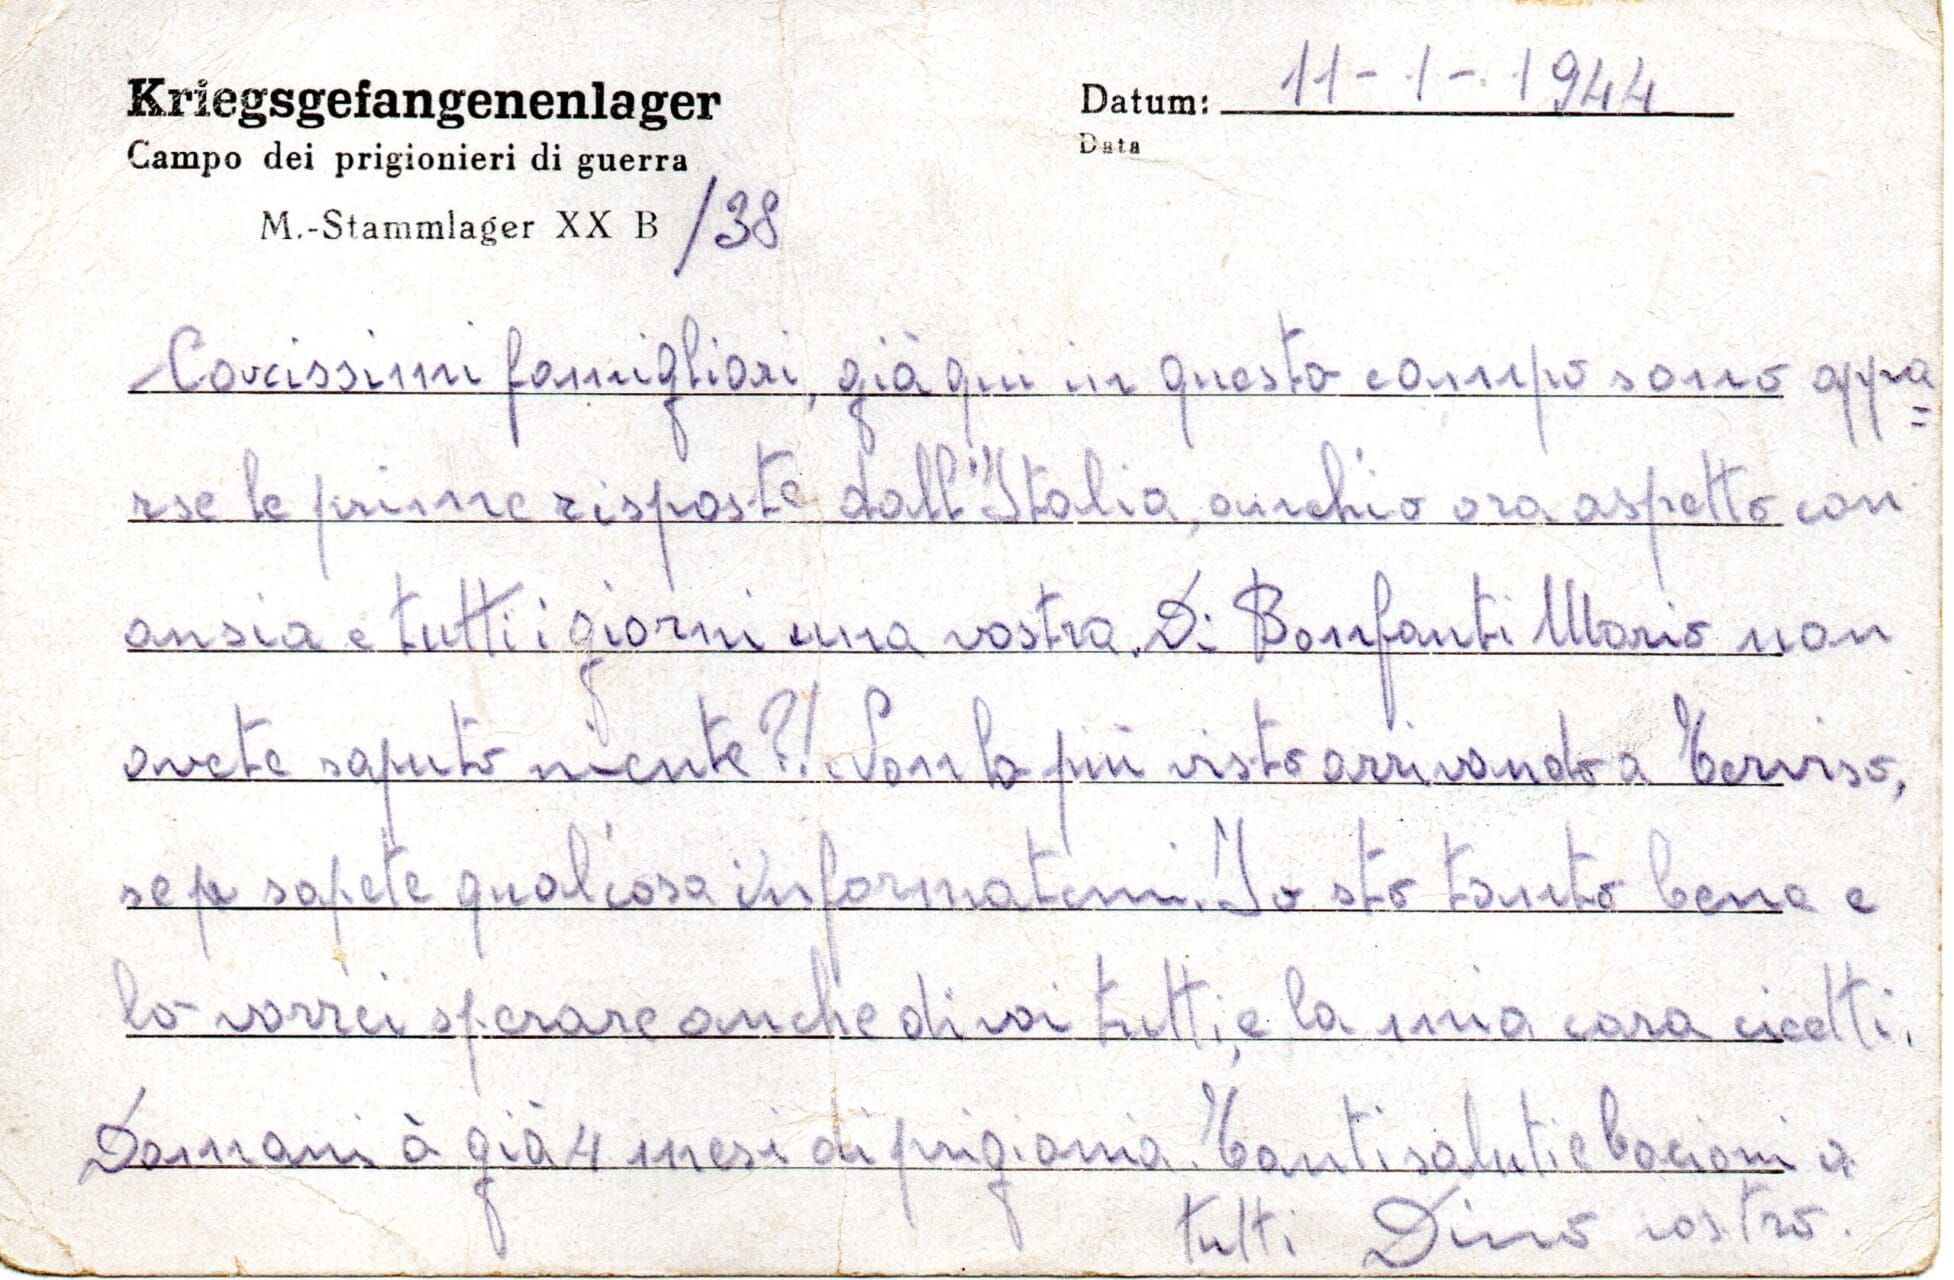 Kriegsgefangenenlager
Campo dei prigionieri di guerra
M.-Stammlager XX B /38
Datum: 11-1-1944
Data
Carissimi famigliari, già qui in questo campo sono appa=
rse le prime risposte dall'Italia, anch'io ora aspetto con
ansia e tutti i giorni una vostra. Di Bonfanti Mario non
avete saputo niente?! Non lo più visto arrivando a Terviso,
se sapete qualcosa informatemi. Io sto tanto bene e
lo vorrei sperare anche di voi tutti, e la mia cara
Domani à già 4 mesi di prigionia. Tanti saluti e bacioni a
tutti Dino vostro.